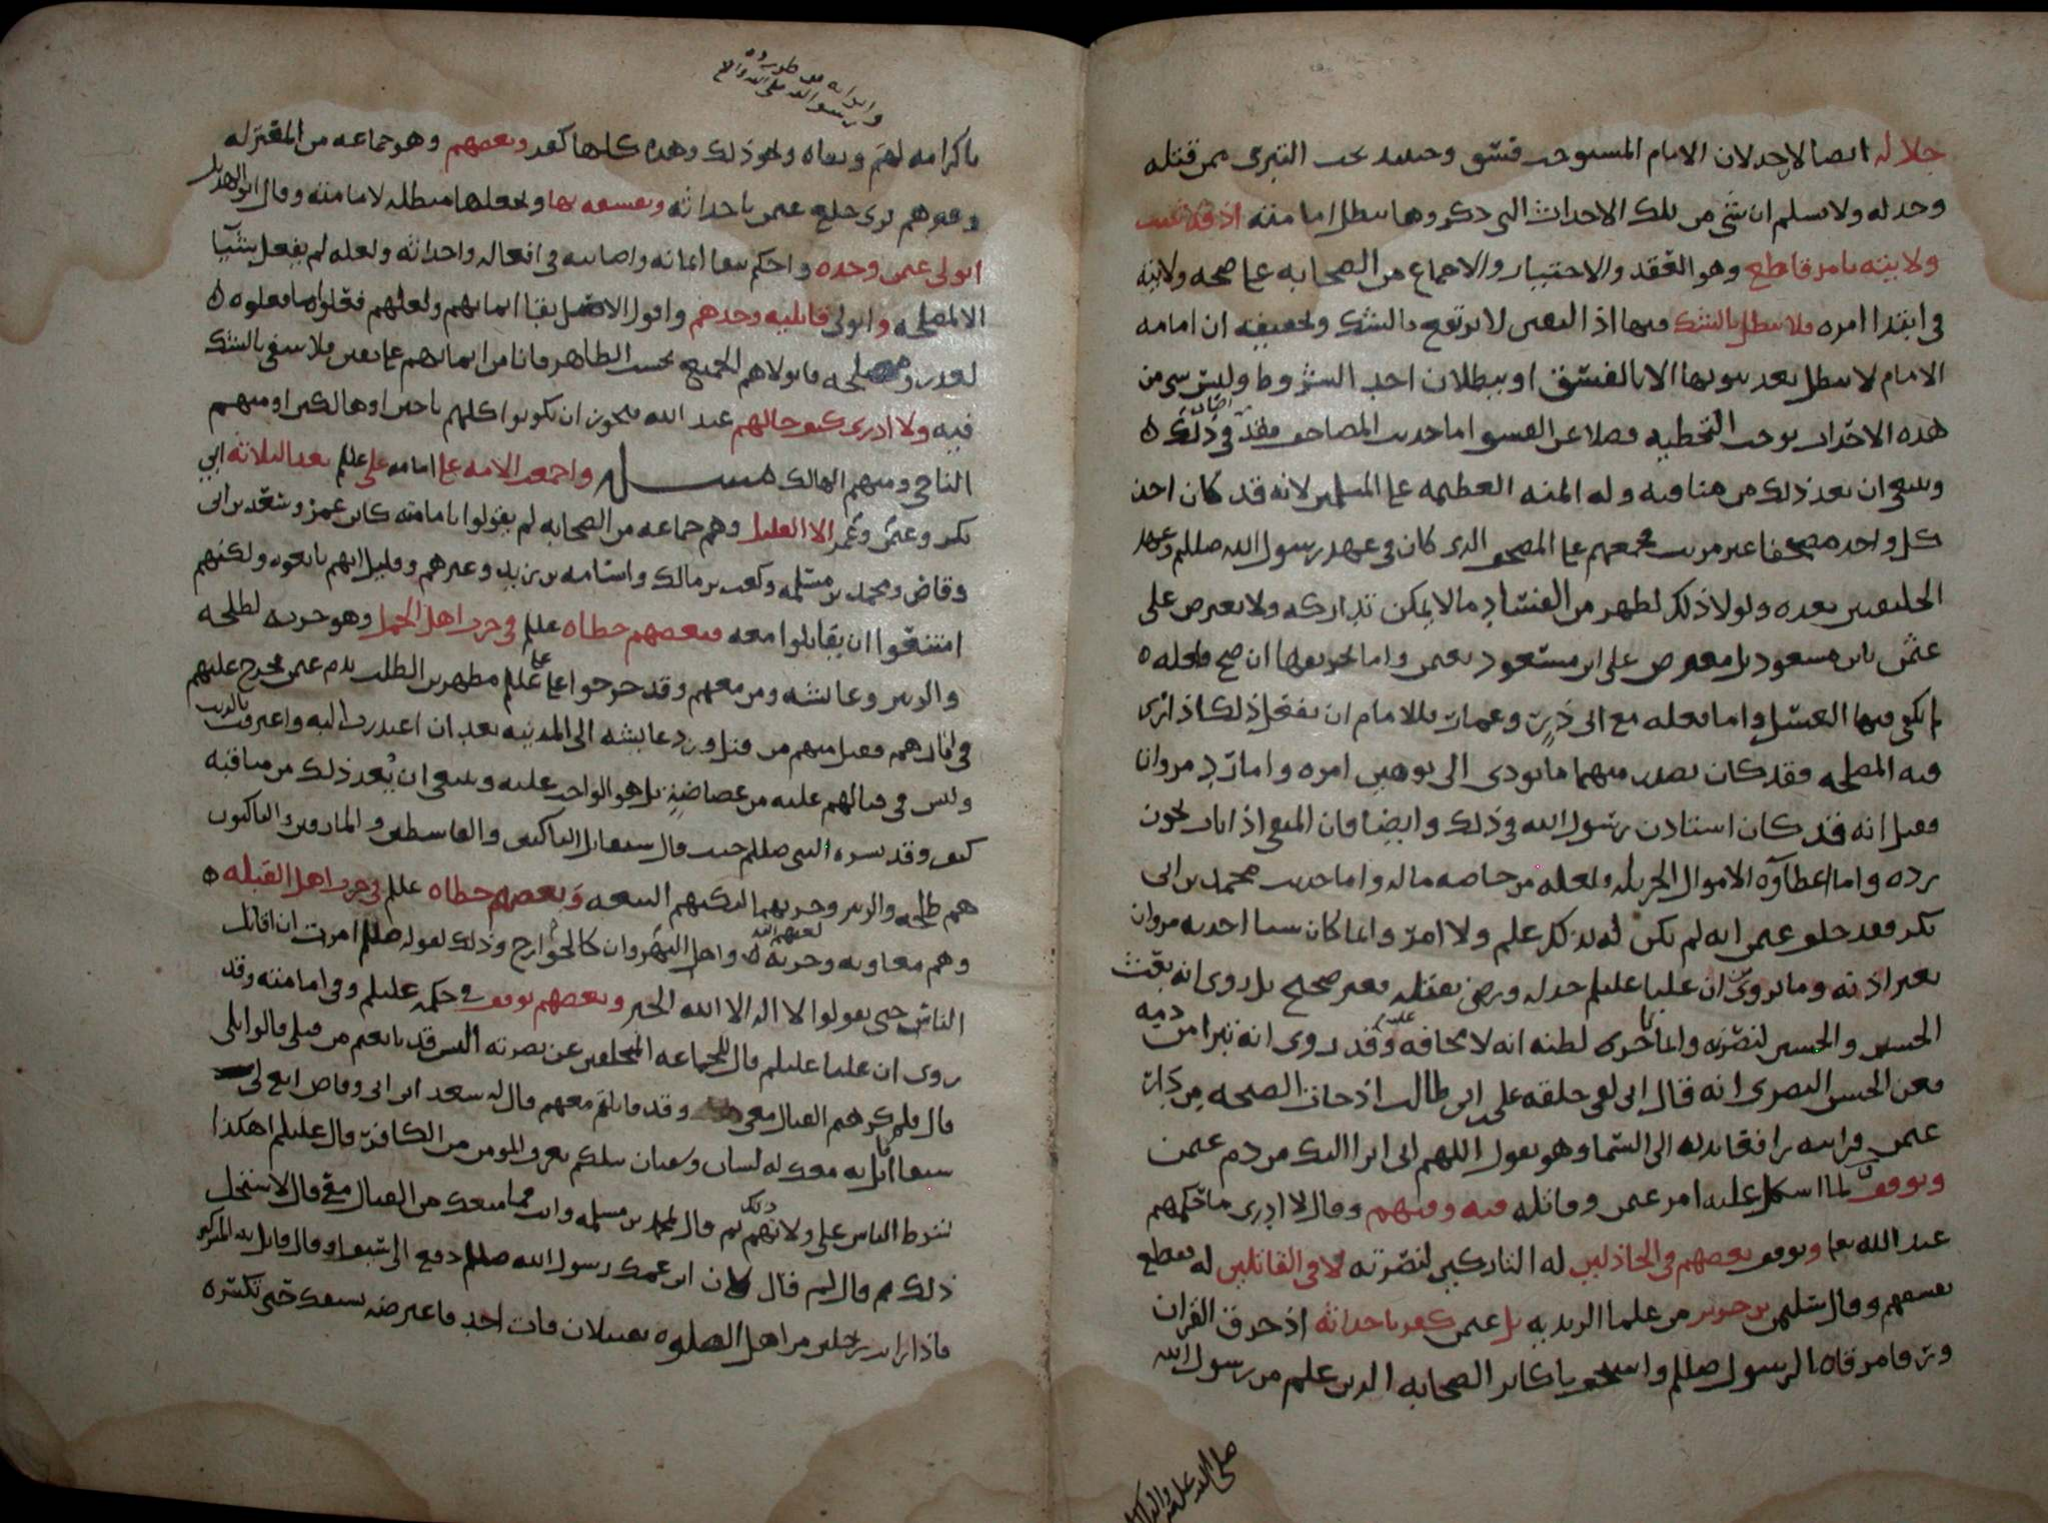 خلاله ايضا لاجد لان الامام المستوجب فسق وحينئذ يجب التبرى ممن قتله
وخذله ولا نسلم ان شى من تلك الاحداث التى ذكروها يبطل امامته اذ قد ثبتت
ولايته بامر قاطع وهو العقد والاختيار والاجماع من الصحابه على صحه ولايته
فى ابتدا امره فلا تبطل بالشك فيها اذ اليقين لا يرتفع بالشك وتحقيقه ان امامه
الامام لا تبطل بعد ثبوتها الا بالفسق او ببطلان احد الشروط وليس شى من
هذه الاحداث يوجب التخطيه فضلا عن الفسق اما حديث المصاحف فقد اصاب فى ذلك ه
وينبغى ان يعد ذلك من مناقبه وله المنه العظيمه على المسلمين لانه قد كان اخذ
كل واحد مصحفا غير مرتب فجمعهم على المصحف الذى كان فى عهد رسول الله صللم وعهد
الخليفتين بعده ولولا ذلك لظهر من الفساد ما لا يمكن تداركه ولا يعترض على
عثمن بابن مسعود بل يعترض على ابن مسعود بعثمن واما تحريقها ان صح فلعله ه
لم يكفى فيها الغسل واما فعله مع ابى ذر وعمار فللامام ان يفعل ذلك اذا راى
فيه المصلحه فقد كان يصدر منهما ما يودى الى توهين امره واما رد مروان
فقيل انه قد كان استاذن رسول الله فى ذلك وايضا فان المنفى اذا تاب يجوز
رده واما اعطاؤه الاموال الجزيله فلعله من خاصه ماله واما حديث محمد بن ابى
بكر فقد حلف عثمن انه لم يكن له بذلك علم ولا امر وانما كان شيا احدثه مروان
بغير اذنه وما يروى ان عليا عليلم خذله ورضى بقتله فغير صحيح بل روى انه بعث
الحسن والحسين لنصرته وانما تاخرى لظنه انه لا مخافه عليه وقد روى انه تبرا من دمه
فعن الحسن البصرى انه قال انى لفى حلقه على بن ابى طالب اذ جات الصيحه من دار
عثمن فرايته رافعا يديه الى السما وهو يقول اللهم انى ابرا اليك من دم عثمن
وتوقف لما اشكل عليه امر عثمن وقاتله فيه وفيهم وقال لا ادرى ما حكمهم
عند الله تعا وتوقف بعضهم فى الخاذلين له التاركين لنصرته لا فى القاتلين له فقطع
بفسقهم وقال سليمن بن جرير من علما الزيديه بل عثمن كفر باحداثه اذ حرق القران
ورقا مرقاه الرسول صللم واستخف باكابر الصحابه الذين علم من رسول الله
صلى الله عليه واله
وابوابه من طريد
رسول الله صلى الله عليه واله
باكرامه لهم ونفاه ونحو ذلك وهذه كلها كفر وبعضهم وهو جماعه من المعتزله
وغيرهم يرى خلع عثمن باحداثه وتفسيقه بها ويجعلها مبطله لامامته وقال ابو الهذيل
اتولى عثمن وحده واحكم ببقا ايمانه واصابته فى افعاله واحداثه ولعله لم يفعل شيا
الا لمصلحه واتولى قاتليه وحدهم واقول الاصل بقا ايمانهم ولعلهم فعلوا ما فعلوه ه
لعذر ومصلحه فاتولاهم الجميع بحسب الظاهر فانا من ايمانهم على يقين فلا ينتفى بالشك
فيه ولا ادرى كيف حالهم عند الله فيجوز ان يكونوا كلهم ناجين او هالكين او منهم
الناجى ومنهم الهالك مسله واجمعت الامه على امامه على عللم بعد الثلاثه ابى
بكر وعثمن وعمر الا القليل وهم جماعه من الصحابه لم يقولوا بامامته كابن عمر وسعد بن ابى
وقاص ومحمد بن مسلمه وكعب بن مالك واسامه بن زيد وغيرهم وقيل انهم بايعوه ولكنهم
امتنعوا ان يقاتلوا معه وبعضهم خطاه عللم فى حرب اهل الجمل وهو حربه لطلحه
والزبير وعايشه ومن معهم وقد خرجوا على على عللم مظهرين الطلب بدم عثمن فخرج عليهم
فى اثارهم فقتل منهم من قتل ورد عايشه الى المدينه بعد ان اعتذرت اليه واعترفت بالذنب
وليس فى قتالهم عليه من غضاضه بل هو الواجب عليه وينبغى ان يعد ذلك من مناقبه
كيف وقد بشره النبى صللم حيث قال ستقاتل الناكثين والقاسطين والمارقين والناكثون
هم طلحه والزبير وحزبهما لنكثهم البيعه وبعضهم خطاه عللم فى حرب اهل القبله ه
وهم معاويه وحزبه لعنهم الله واهل النهروان كالخوارج وذلك لقوله صللم امرت ان اقاتل
الناس حتى يقولوا لا اله الا الله الخبر وبعضهم توقف فى حكمه عليلم وفى امامته وقد
روى ان عليا عليلم قال للجماعه المتخلفين عن نصرته اليس قد بايعتم من قبلى قالوا بلى
قال فلم كرهتم القتال معى وقد قاتلتم معهم قال له سعد ابن ابى وقاص ابغ لى
سيفا اقاتل به معك له لسان وشفتان يعرف المومن من الكافر قال عليلم اهكذا
شرط الناس على ولاتهم ذلك ثم قال لمحمد بن مسلمه وانت فما منعك من القتال معى قال لا استحل
ذلك ثم قال لم قال ان ابن عمك رسول الله صللم دفع الى سيفا وقال قاتل به المشركين
فاذا رايت رجلين من اهل الصلوه يقتتلان فات احد فاعترضه بسيفك حتى تكسره